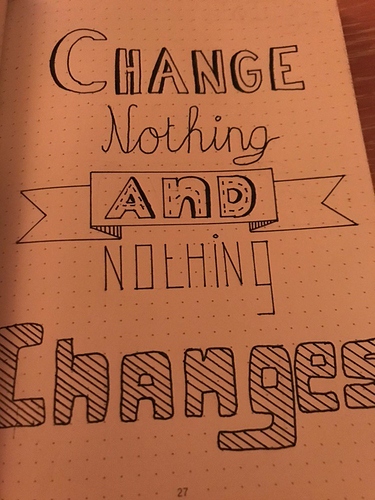 CHANGE
Nothing
AnD
NOtHiNg
Changes
27